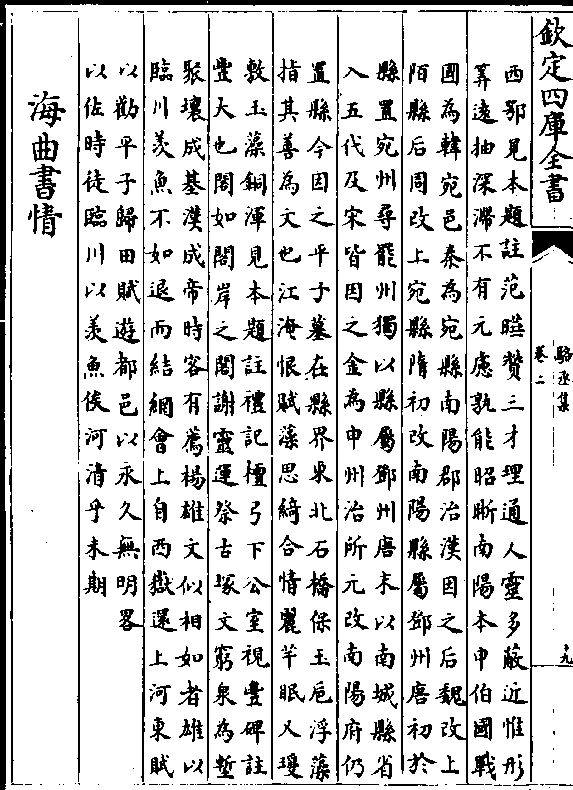 欽定四庫全書
駱丞集
卷二
十九
西鄂見本題註范曄贊三才理通人靈多蔽近惟形
算遠抽深滯不有元慮孰能昭晰南陽本申伯國戰
國為韓宛邑秦為宛縣南陽郡治漢因之后魏改上
陌縣后周改上宛縣隋初改南陽縣屬鄧州唐初於
縣置宛州尋罷州獨以縣屬鄧州唐末以南城縣省
入五代及宋皆因之金為申州治所元改南陽府仍
置縣今因之平子墓在縣界東北石橋保玉巵浮藻
指其善為文也江淹恨賦藻思綺合情麗芊眠又瓊
敷玉藻銅渾見本題註禮記檀弓下公室視豐碑註
豐大也閣如閣岸之閣謝靈運祭古塚文窮泉為塹
聚壤成基漢成帝時客有薦楊雄文似相如者雄以
臨川羨魚不如退而結網會上自西嶽還上河東賦
以勸平子歸田賦遊都邑以永久無明畧
以佐時徒臨川以羨魚俟河清乎未期
海曲書情